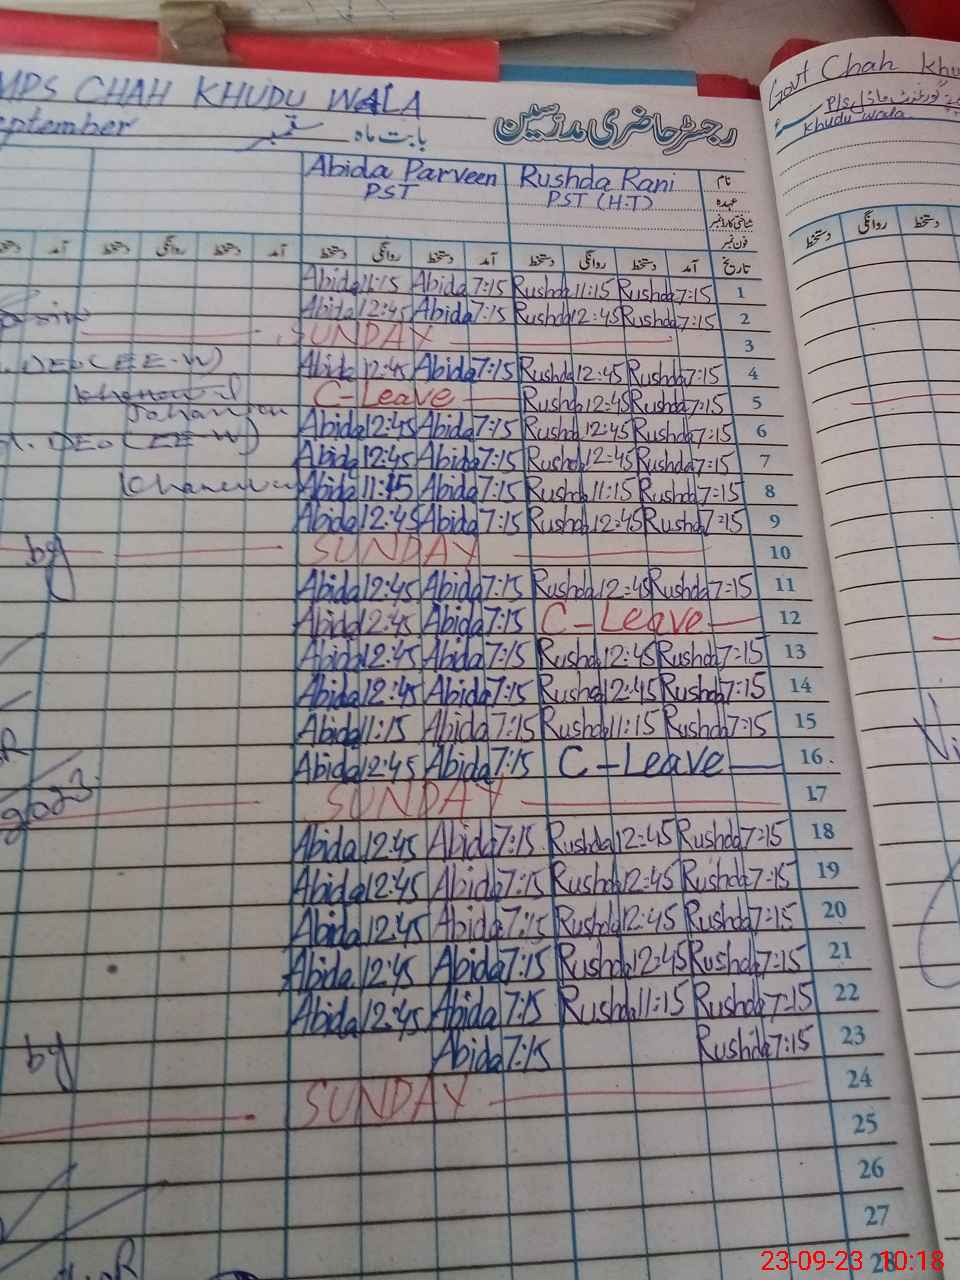 MPS CHAH KHUDU WALA
Govt Chah Khu
September بابت ماہ ستمبر رجسٹر حاضری مدرسین
Khudu wala
Abida Parveen Rushda Rani نام
PST PST (H.T) عہدہ
شناختی کارڈ نمبر
فون نمبر
دستخط آمد دستخط روانگی دستخط آمد دستخط روانگی دستخط آمد دستخط روانگی دستخط آمد تاریخ
دستخط روانگی دستخط
Abida 11:15 Abida 7:15 Rushda 11:15 Rushda 7:15 1
Abida 12:45 Abida 7:15 Rushda 12:45 Rushda 7:15 2
SUNDAY 3
DEO (EE-W) Abida 12:45 Abida 7:15 Rushda 12:45 Rushda 7:15 4
C-Leave Rushda 12:45 Rushda 7:15 5
DEO (EE-W) Abida 12:45 Abida 7:15 Rushda 12:45 Rushda 7:15 6
Abida 12:45 Abida 7:15 Rushda 12:45 Rushda 7:15 7
Abida 11:15 Abida 7:15 Rushda 11:15 Rushda 7:15 8
Abida 12:45 Abida 7:15 Rushda 12:45 Rushda 7:15 9
by SUNDAY 10
Abida 12:45 Abida 7:15 Rushda 12:45 Rushda 7:15 11
Abida 12:45 Abida 7:15 C-Leave 12
Abida 12:45 Abida 7:15 Rushda 12:45 Rushda 7:15 13
Abida 12:45 Abida 7:15 Rushda 12:45 Rushda 7:15 14
Abida 11:15 Abida 7:15 Rushda 11:15 Rushda 7:15 15
Abida 12:45 Abida 7:15 C-Leave 16
SUNDAY 17
Abida 12:45 Abida 7:15 Rushda 12:45 Rushda 7:15 18
Abida 12:45 Abida 7:15 Rushda 12:45 Rushda 7:15 19
Abida 12:45 Abida 7:15 Rushda 12:45 Rushda 7:15 20
Abida 12:45 Abida 7:15 Rushda 12:45 Rushda 7:15 21
Abida 12:45 Abida 7:15 Rushda 11:15 Rushda 7:15 22
by Abida 7:15 Rushda 7:15 23
SUNDAY 24
25
26
27
28
23-09-23 10:18